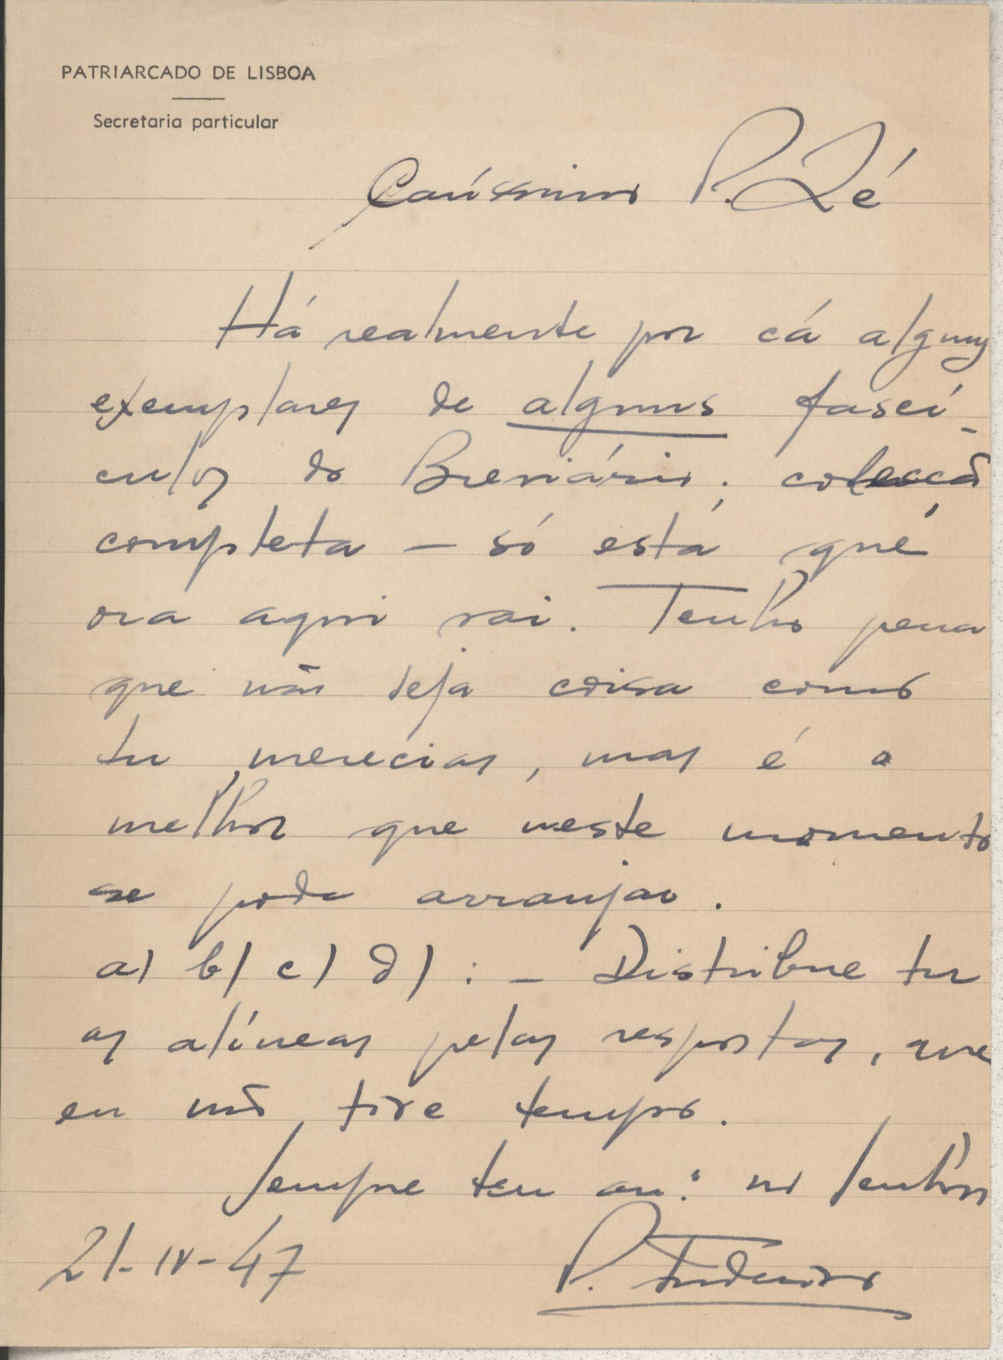 PATRIARCADO DE LISBOA
Secretaria particular
Caríssimo P. Zé
Há realmente por cá alguns
exemplares de alguns fascí-
culos do Breviário; colecção
completa – só está que
ora aqui vai. Tenho pena
que não seja coisa como
tu merecias, mas é o
melhor que neste momento
se pode arranjar.
a) b) c) d) : – Distribue tu
as alíneas pelas respostas, que
eu não tive tempo.
Sempre teu am.º no Senhor
21-IV-47
P.